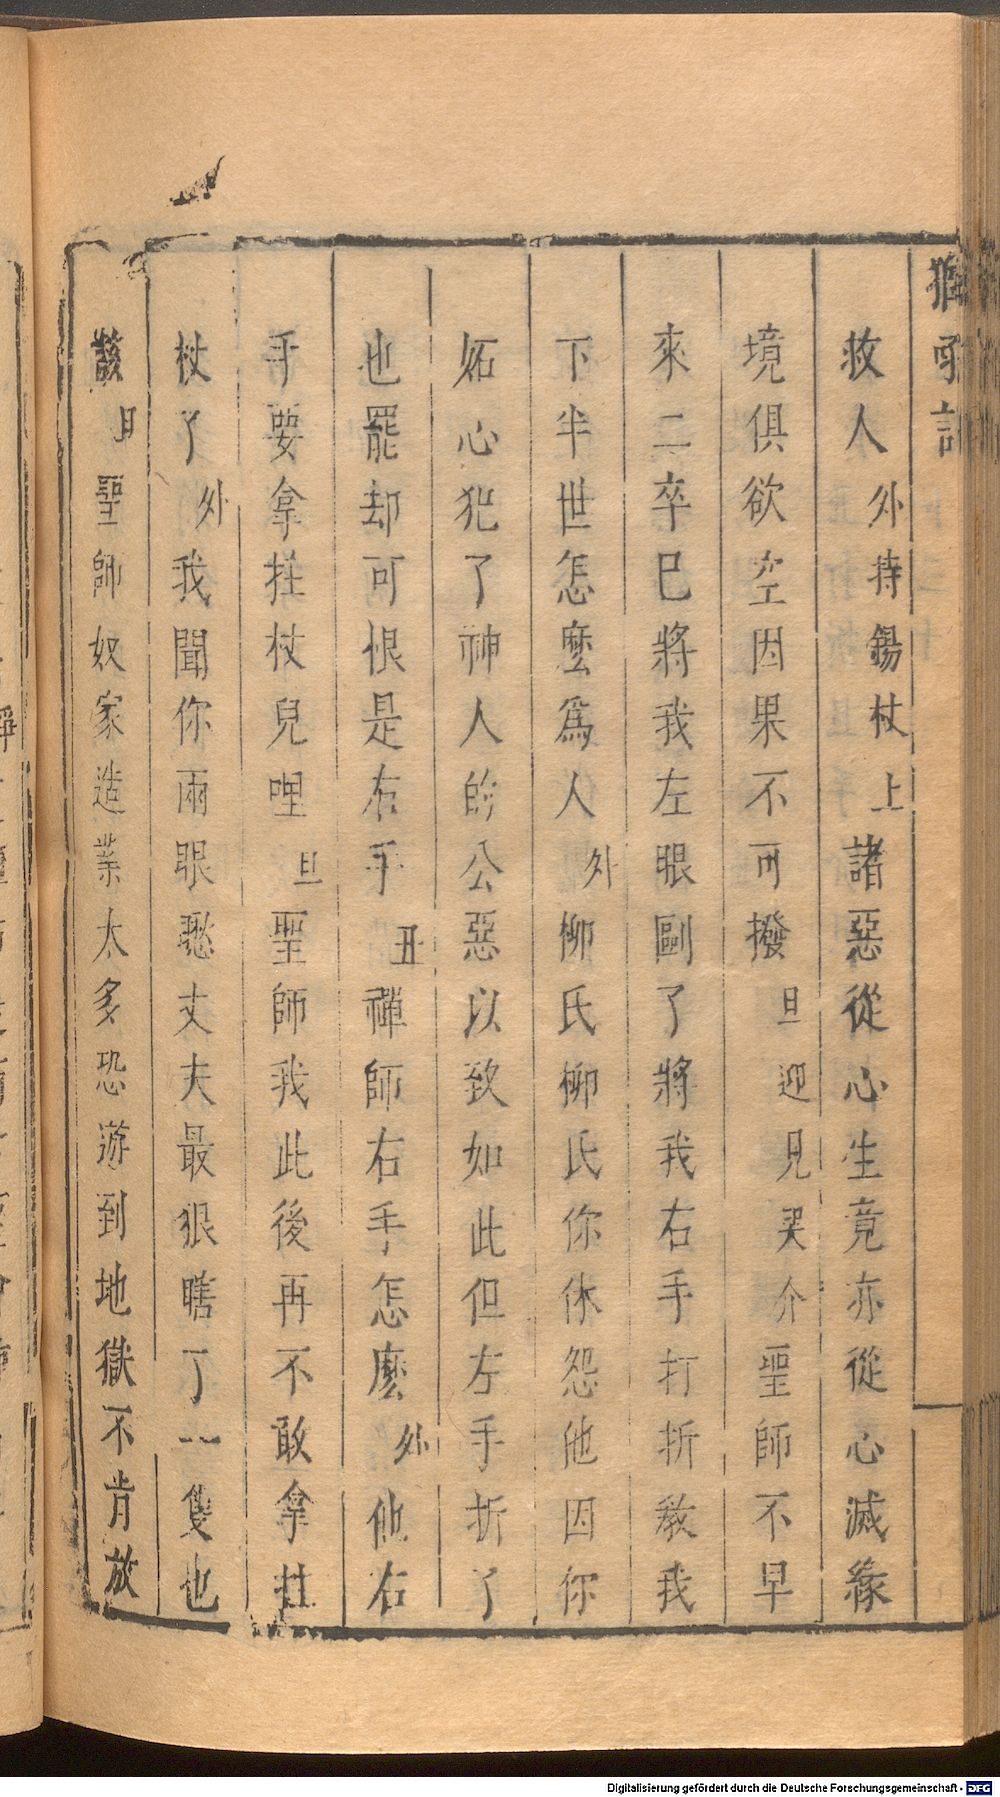 獅吼記
救人外持錫杖上諸惡從心生竟亦從心滅緣
境俱欲空因果不可撥旦迎見哭介聖師不早
來二卒巳將我左眼剮了將我右手打折教我
下半世怎麽爲人外柳氏柳氏你休怨他因你
妬心犯了神人的公惡以致如此但左手折了
也罷却可恨是右手丑禪師右手怎麽外他右
手要拿拄杖兒哩旦聖師我此後再不敢拿拄
杖了外我聞你兩眼愁丈夫最狠瞎了一隻也
該旦聖師奴家造業太多恐遊到地獄不肯放
Digitalisierung gefördert durch die Deutsche Forschungsgemeinschaft - DFG